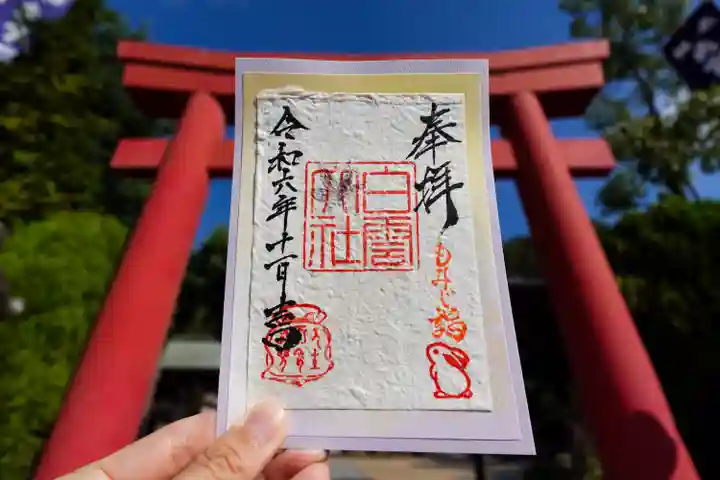 奉拝
もみじ詣
白雲
社
令和六年十一月吉日